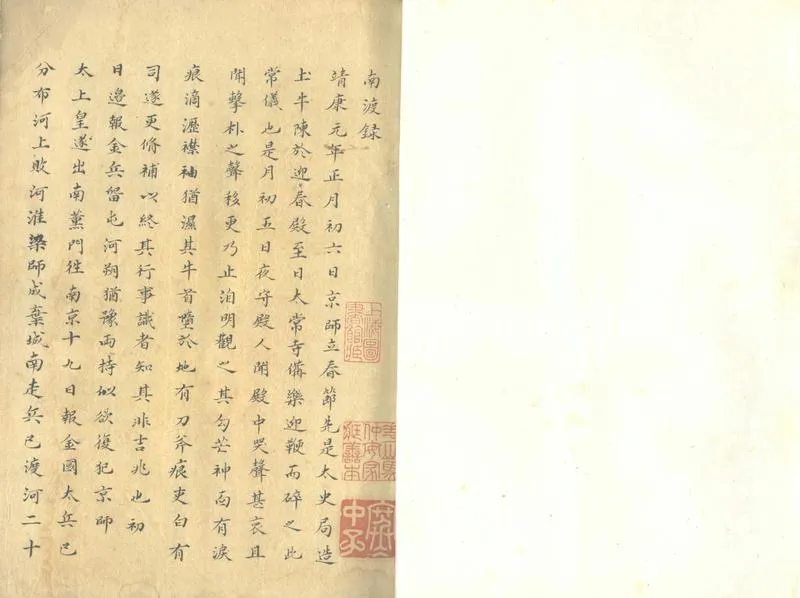 南渡録
靖康元年正月初六日京師立春節先是太史局造
土牛陳於迎春殿至日太常寺備樂迎鞭而碎之此
常儀也是月初五日夜守殿人聞殿中哭聲甚哀且
聞擊朴之聲移更乃止洎明觀之其勾芒神面有淚
痕滴瀝襟袖猶濕其牛首墮於地有刀斧痕吏白有
司遂更脩補以終其行事識者知其非吉兆也初
日邊報金兵留屯河朔猶豫両持似欲復犯京師
太上皇遂出南薰門徃南京十九日報金國太兵已
分布河上敗河淮梁師成棄城南走兵已渡河二十
上海圖
書館藏
仲安家
藏善本